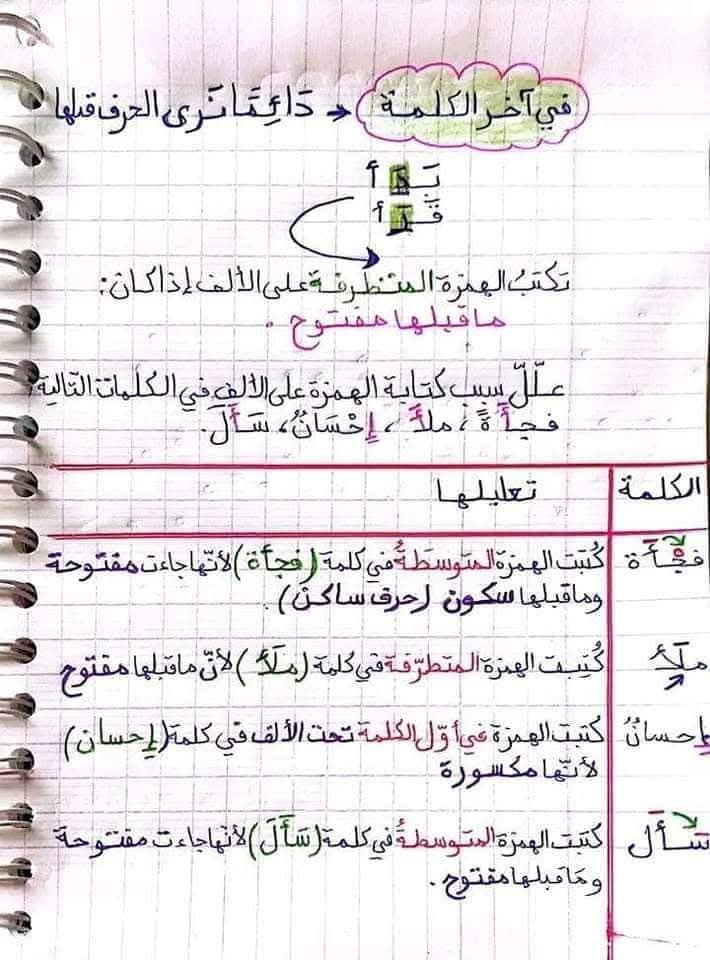 في آخر الكلمة ← دَائِمًا نَرى الحرف قبلها
بَدَ أ
قَرَ أ
تكتبُ الهمزة المتطرفة على الألف إذا كان:
ما قبلها مفتوح .
علّلْ سبب كتابة الهمزة على الألف في الكلمات التالية:
فجأَةً ، ملأَ ، إِحْسَانٌ ، سَأَلَ.
الكلمة تعليلها
فجْأَة كُتبت الهمزة المتوسطةُ في كلمة (فجأة) لأنّها جاءت مفتوحة
وما قبلها سكون (حرف ساكن) .
ملَأَ كُتِبت الهمزة المتطرّفة في كلمة (ملَأَ) لأنّ ما قبلها مفتوح
إحسانٌ كتبت الهمزة في أوّل الكلمة تحت الألف في كلمة (إحسان)
لأنّها مكسورة
سَأَل كتبت الهمزة المتوسطةُ في كلمة (سَأَلَ) لأنها جاءت مفتوحة
وما قبلها مفتوح .